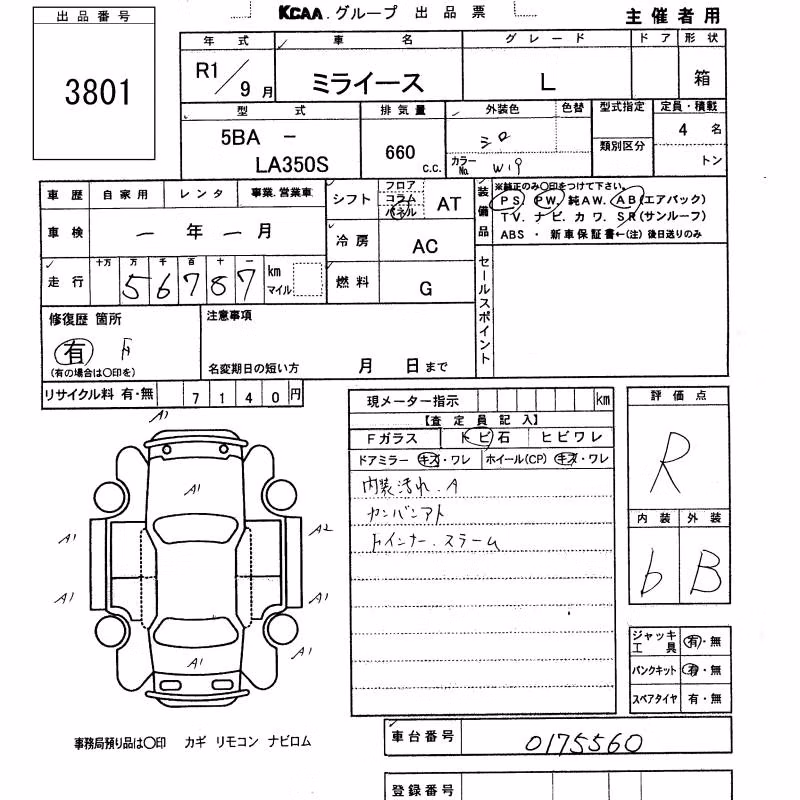 出品番号
3801
KCAA.グループ 出品票
主催者用
年式 車名 グレード ドア 形状
R1/9月 ミライース L 箱
型式 排気量 外装色 色替 型式指定 定員・積載
5BA - LA350S
660 c.c.
シロ
カラーNo. W19
類別区分
4 名
トン
車歴 自家用 レンタ 事業.営業車
車検 一年一月
走行 十万 万 千 百 十 一
56787 km マイル
シフト フロア コラム パネル AT
冷房 AC
燃料 G
装備品
※純正のみ〇印をつけて下さい。
PS PW. 純AW. AB(エアバック)
TV. ナビ. カワ. SR(サンルーフ)
ABS ・ 新車保証書←(注)後日送りのみ
セールスポイント
修復歴 箇所
有
(有の場合は〇印を)
注意事項
名変期日の短い方 月 日まで
リサイクル料 有・無 7140円
現メーター指示 km
【査定員記入】
Fガラス トビ石 ヒビワレ
ドアミラー キズ・ワレ ホイール(CP) キズ・ワレ
内装汚れ.A
カンバンアト
評価点
R
内装 外装
b B
A1
A1
A1 A2
A1 A1
A1 A1
ジャッキ工具 有・無
パンクキット 有・無
スペアタイヤ 有・無
事務局預り品は〇印 カギ リモコン ナビロム
車台番号 0175560
登録番号